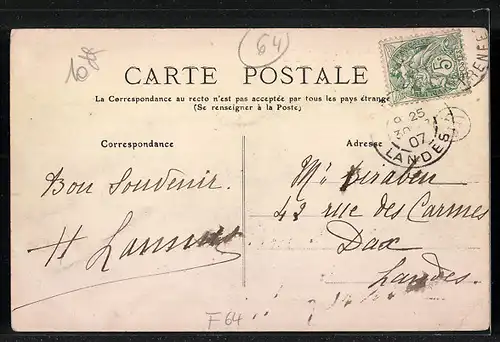 64
CARTE POSTALE
La Correspondance au recto n'est pas acceptée par tous les pays étrange
(Se renseigner à la Poste)
Correspondance
Adresse
Bon Souvenir.
42 rue des Carmes
Dax
Landes.
5
25
07
LANDES
F64